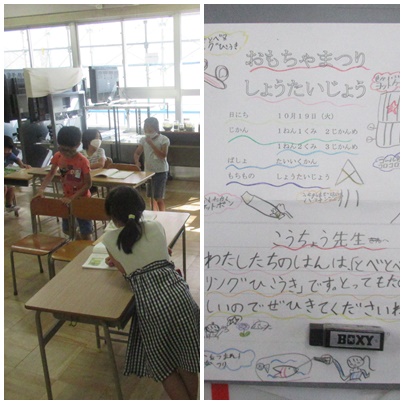 おもちゃまつり
しょうたいじょう
日にち　10月19日（火）
じかん　1ねん1くみ　2じかんめ
1ねん2くみ　3じかんめ
ばしょ　たいいくかん
もちもの　しょうたいじょう
こうちょう先生
わたしたちのはんは、「とべとべ
リングひこうき」です。とってもたの
しいのでぜひきてくださいね
BOXY